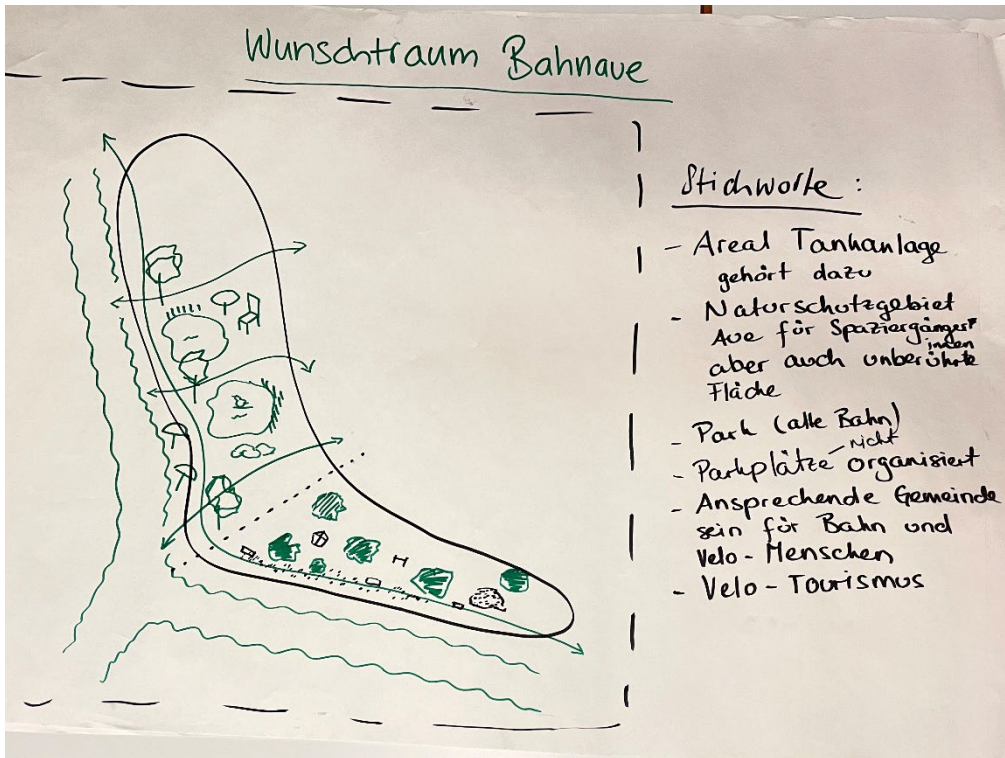 Wunschtraum Bahnaue
Stichworte :
- Areal Tankanlage
gehört dazu
- Naturschutzgebiet
Aue für Spaziergänger*
innen
aber auch unberührte
Fläche
- Park (alle Bahn)
- Parkplätze nicht organisiert
- Ansprechende Gemeinde
sein für Bahn und
Velo-Menschen
- Velo-Tourismus